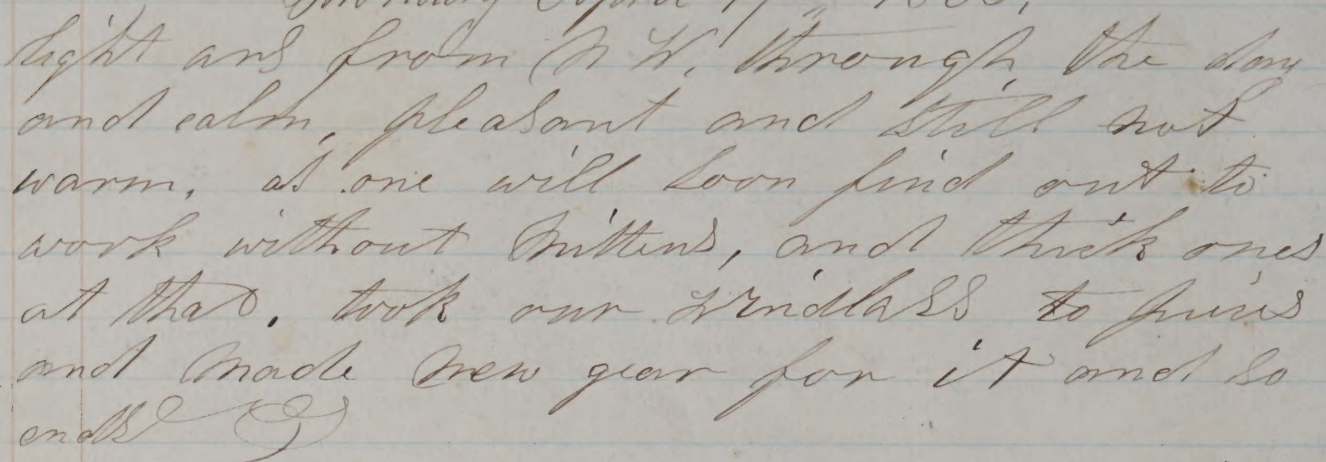 light ars from N W, through the day
and calm, pleasant and still not
warm, as one will soon find out to
work without mittens, and thick ones
at that. took our windlass to pieces
and made new gear for it and so
ends